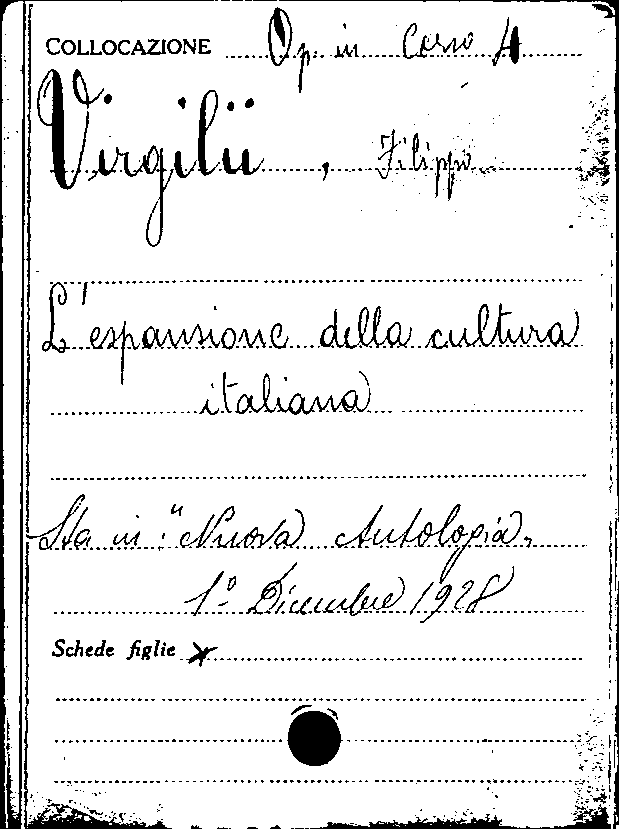 COLLOCAZIONE Op. in Corso A
Virgilii, Filippo
L'espansione della cultura
italiana
Sta in: "Nuova Antologia„
1º Dicembre 1928
Schede figlie x